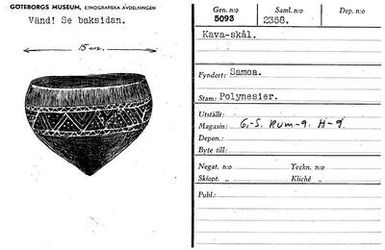 GÖTEBORGS MUSEUM, ETNOGRAFISKA AVDELNINGEN
Vänd! Se baksidan.
15 cm.
Gen. n:o 5093
Saml. n:o 2358.
Dep. n:o
Kava-skål.
Fyndort: Samoa.
Stam: Polynesier.
Utställt:
Magasin: G.-S. Rum-9. H-9.
Depon.:
Byte till:
Negat. n:o Teckn. n:o
Skiopt. „ Kliché „
Publ.: